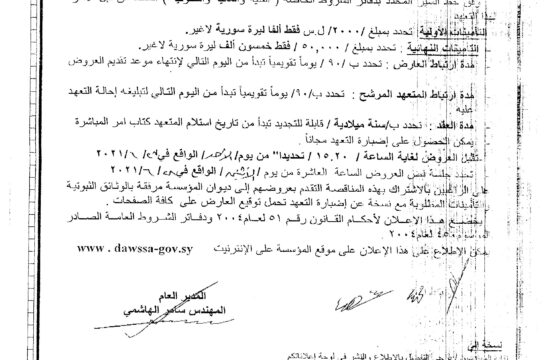 لهذا التعهد
التأمينات الأولية : تحدد بمبلغ /٢٠٠٠/ ل.س فقط ألفا ليرة سورية لاغير.
التأمينات النهائية : تحدد بمبلغ / ٥٠,٠٠٠ / فقط خمسون ألف ليرة سورية لاغير.
مدة ارتباط العارض : تحدد ب /٩٠/ يوماً تقويمياً تبدأ من اليوم التالي لإنتهاء موعد تقديم العروض
مدة ارتباط المتعهد المرشح : تحدد ب/٩٠/ يوماً تقويمياً تبدأ من اليوم التالي لتبليغه إحالة التعهد
عليه
مدة العقد : تحدد ب/سنة ميلادية / قابلة للتجديد تبدأ من تاريخ استلام المتعهد كتاب امر المباشرة
يمكن الحصول على إضبارة التعهد مجاناً .
تقبل العروض لغاية الساعة / ١٥,٣٠ / تحديدا" من يوم / الواقع في / ٦ / ٢٠٢١
تحدد جلسة فض العروض الساعة العاشرة من يوم / الواقع في / ٦ / ٢٠٢١
على الراغبين بالاشتراك بهذه المناقصة التقدم بعروضهم إلى ديوان المؤسسة مرفقة بالوثائق الثبوتية
والتأمينات المطلوبة مع نسخة عن إضبارة التعهد تحمل توقيع العارض على كافة الصفحات .
يخضع هذا الإعلان لأحكام القانون رقم ٥١ لعام ٢٠٠٤ ودفاتر الشروط العامة الصادر
٤٥٠ لعام ٢٠٠٤
يمكن الإطلاع على هذا الإعلان على موقع المؤسسة على الإنترنيت www . dawssa-gov.sy
المدير العام
المهندس سامر الهاشمي
نسخة إلى
التفضل بالإطلاع والنشر في لوحة إعلاناتكم